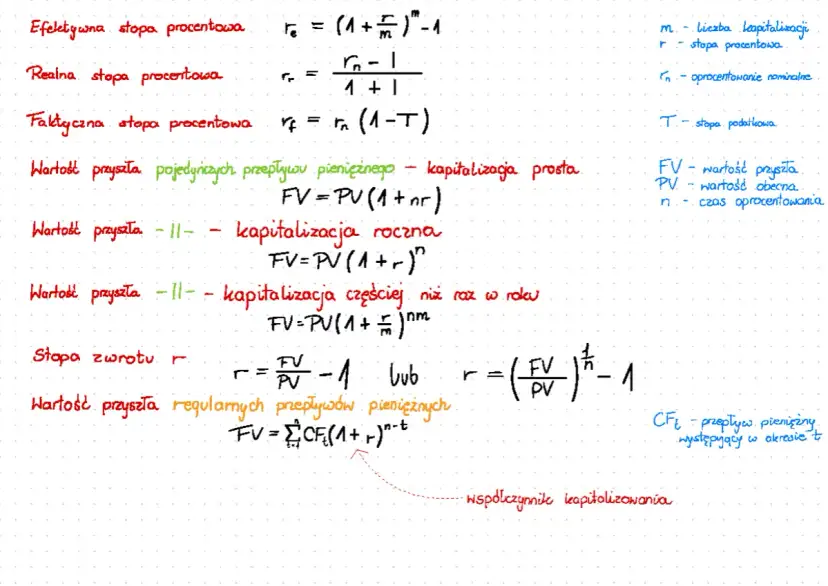 Efektywna stopa procentowa r_e = (1 + r/m)^m - 1 m - liczba kapitalizacji
r - stopa procentowa
Realna stopa procentowa r_r = (r_n - I)/(1 + I) r_n - oprocentowanie nominalne
Faktyczna stopa procentowa r_f = r_n (1 - T) T - stopa podatkowa
Wartość przyszła pojedynczych przepływu pieniężnego - kapitalizacja prosta FV - wartość przyszła
FV = PV(1 + nr) PV - wartość obecna
n - czas oprocentowania
Wartość przyszła -||- - kapitalizacja roczna
FV = PV(1 + r)^n
Wartość przyszła -||- - kapitalizacja częściej niż raz w roku
FV = PV(1 + r/m)^nm
Stopa zwrotu r r = FV/PV - 1 lub r = (FV/PV)^(1/n) - 1
Wartość przyszła regularnych przepływów pieniężnych
FV = Σ_{t=1}^{n} CF_t(1 + r)^(n-t) CF_t - przepływ pieniężny
występujący w okresie t
współczynnik kapitalizowania